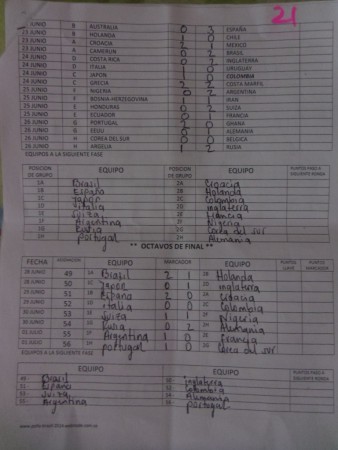 21
JUNIO B AUSTRALIA 0 3 ESPAÑA
23 JUNIO B HOLANDA 1 0 CHILE
23 JUNIO A CROACIA 2 1 MEXICO
23 JUNIO A CAMERUN 0 2 BRASIL
24 JUNIO D COSTA RICA 0 2 INGLATERRA
24 JUNIO D ITALIA 1 0 URUGUAY
24 JUNIO C JAPON 1 0 COLOMBIA
24 JUNIO C GRECIA COSTA MARFIL
25 JUNIO F NIGERIA 0 2 ARGENTINA
25 JUNIO F BOSNIA-HERZEGOVINA 1 1 IRAN
25 JUNIO E HONDURAS 0 2 SUIZA
25 JUNIO E ECUADOR 0 1 FRANCIA
26 JUNIO G PORTUGAL 0 GHANA
26 JUNIO G EEUU 1 ALEMANIA
26 JUNIO H COREA DEL SUR 0 0 BELGICA
26 JUNIO H ARGELIA 1 2 RUSIA
EQUIPOS A LA SIGUIENTE FASE
POSICION DE GRUPO EQUIPO POSICION DE GRUPO EQUIPO PUNTOS PASO A SIGUIENTE RONDA
1A Brasil 2A Croacia
1B España 2B Holanda
1C Japon 2C Colombia
1D Italia 2D Inglaterra
1E Suiza 2E Francia
1F Argentina 2F Nigeria
1G 2G Corea del sur
1H Portugal 2H Alemania
** OCTAVOS DE FINAL **
FECHA EQUIPO MARCADOR EQUIPO PUNTOS PUNTOS MARCADOR
28 JUNIO 49 1A Brasil 2 1 2B Holanda
28 JUNIO 50 1C Japon 0 1 2D Inglaterra
29 JUNIO 51 1B España 2 0 2A Croacia
29 JUNIO 52 1D Italia 0 0 2C Colombia
30 JUNIO 53 1E Suiza 1 1 2F Nigeria
30 JUNIO 54 1G Rusia 0 2 2H Alemania
01 JULIO 55 1F Argentina 1 0 2E Francia
01 JULIO 56 1H portugal 1 0 2G Corea del sur
EQUIPOS A LA SIGUIENTE FASE
EQUIPO EQUIPO PUNTOS PASO A SIGUIENTE RONDA
49 Brasil 50 inglaterra
51 España 52 Colombia
53 Suiza 54 Alemania
55 Argentina 56 portugal